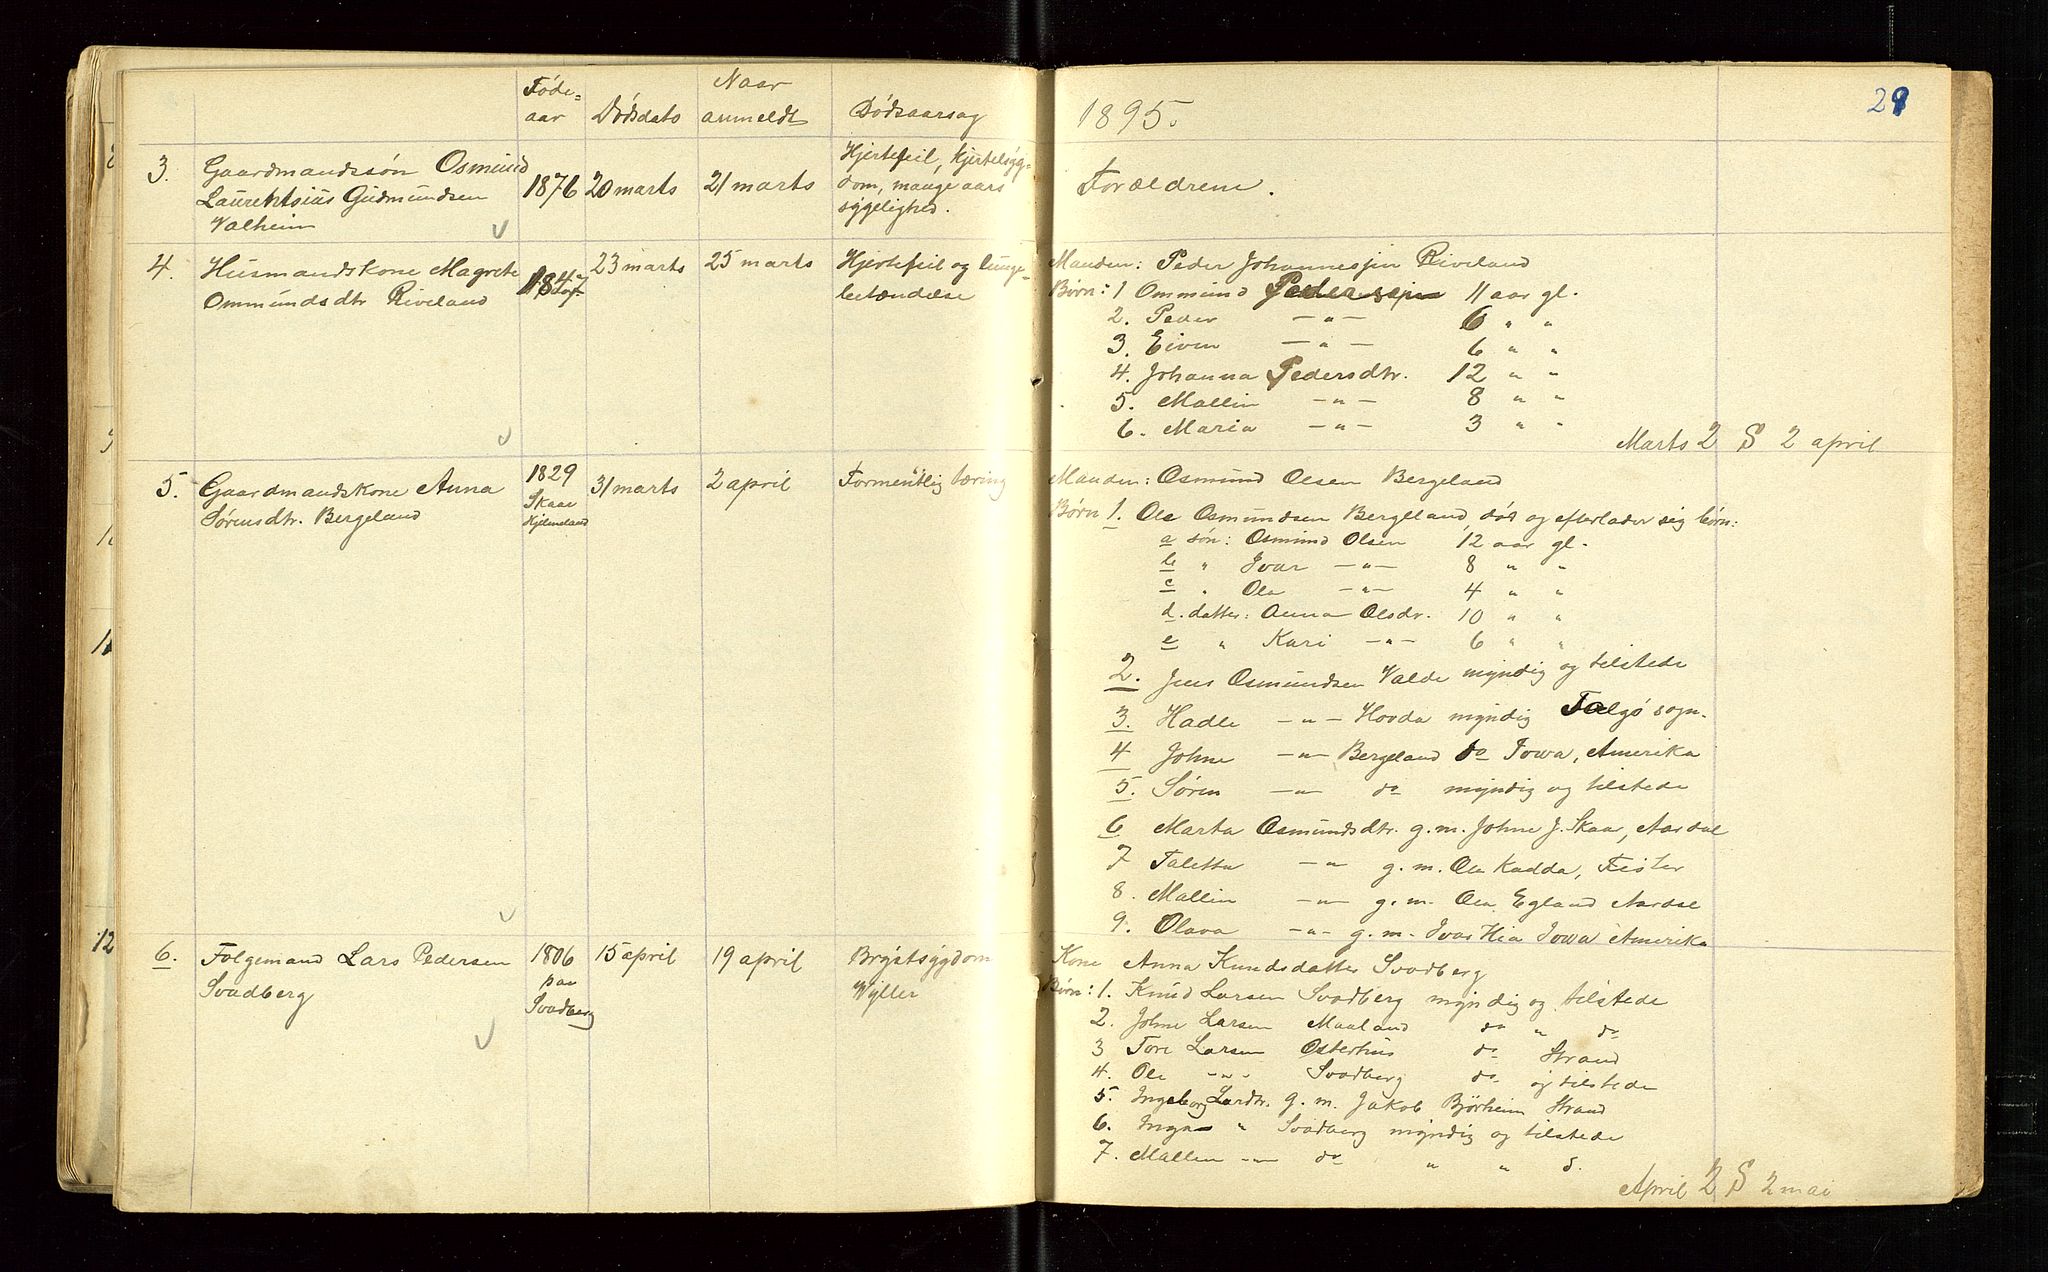 Føde=
aar
Dødsdato
Naar
anmeldt
Dødsaarsag
3. Gaardmandssøn Osmund
Laurentsius Gudmundsen
Valheim
1876
20 marts
21 marts
Hjertefeil, kjertelsyg-
dom, mange aars
sygelighed.
4. Husmandskone Magrete
Ommundsdtr Riveland
1847
23 marts
25 marts
Hjertefeil og lunge-
betændelse
5. Gaardmandskone Anna
Sørensdtr. Bergeland
1829
Skaar
Hjelmeland
31 marts
2 april
Formentlig tæring
6. Folgemand Lars Pedersen
Svadberg
1806
paa
Svadberg
15 april
19 april
Brystsygdom
Wyller
1895.
28
Forældrene.
Manden: Peder Johannessen Riveland
Børn: 1 Ommund Pedersen 11 aar gl.
2. Peder —"— 6 " "
3. Eiven —"— 6 " "
4. Johanna Pedersdtr. 12 " "
5. Mallin —"— 8 " "
6. Maria —"— 3 " "
Marts 2 S 2 april
Manden: Osmund Olsen Bergeland
Børn 1. Ole Osmundsen Bergeland død og efterlader sig børn:
a søn: Osmund Olsen 12 aar gl.
b " Ivar —"— 8 " "
c " Ole —"— 4 " "
d. datter: Anna Olsdr. 10 " "
e " Kari —"— 6 " "
2. Jens Osmundsen Valde myndig og tilstede
3. Hadle —"— Hovda myndig Talgø sogn.
4 Johne —"— Bergeland do Iowa, Amerika
5. Søren —"— do myndig og tilstede
6 Marta Osmundsdtr. g.m. Johne J. Skaar, Aardal
7 Taletta —"— g.m. Ole Kadda, Fister
8. Mallin —"— g.m. Ole Egland Aardal
9. Olava —"— g.m. Ivar Hia Iowa Amerika
Kone Anna Knudsdatter Svadberg
Børn: 1. Knud Larsen Svadberg myndig og tilstede
2. Johne Larsen Maaland do " do
3 Tore Larsen Osterhus do Strand
4. Ole —"— Svadberg do og tilstede
5. Ingeborg Larsdtr. g.m. Jakob Bjørheim Strand
6. Inga " Svadberg myndig og tilstede
7. Mallin —"— do " " d.
April 2 S 2 mai